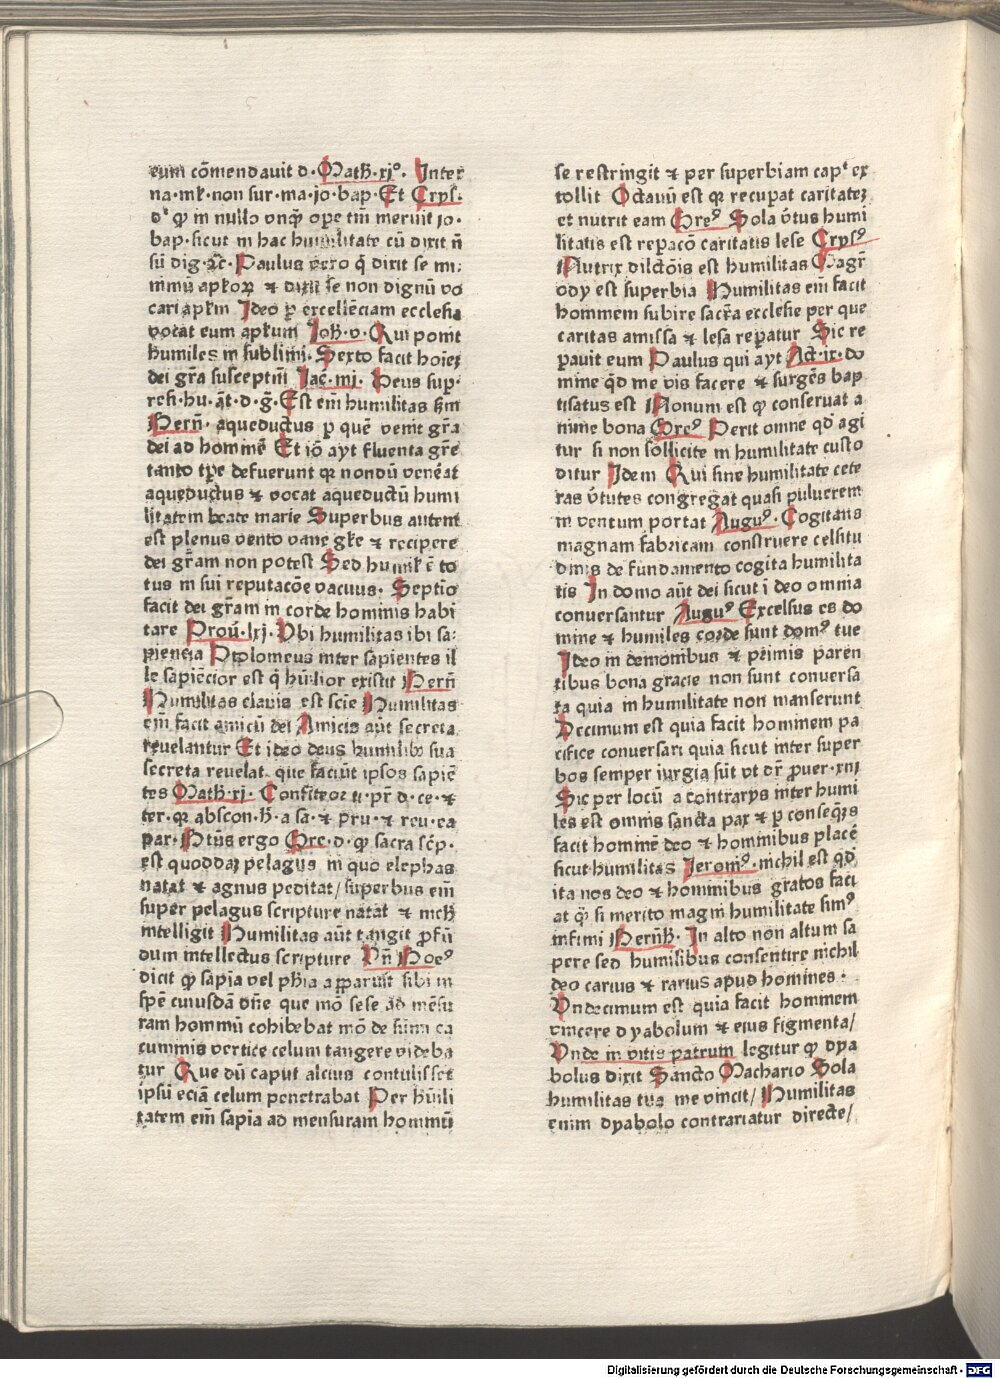 eum cōmendauit d. Math. xi°. Inter
na. mł. non sur. ma. jo. bap. Et Crysˡ.
d' ꝙ in nullo vnꝙ oꝑe tm̄ meruit jo.
bap. sicut in hac humilitate cū dixit n̄
sū dig. ⁊c̄. Paulus vero q̇ dixit se mi⸗
nimū apl̓oꝝ ⁊ dixit se non dignū vo
cari apl̓m Ideo ꝑ excellēciam ecclesia
vocat eum apl̓um Joh̄. v. Qui ponit
humiles in sublimi. Sexto facit hoīeꝫ
dei gr̄a susceptiuū Iac̄. iiij. Deus sup̱.
resi. hu. āt. d. ḡ. Est em̄ humilitas scd̄m
Bern̄. aqueductus ꝑ quē venit gr̄a
dei ad hominē Et iō ayt fluenta gr̄e
tanto tꝑe defuerunt qꝛ nondū venēat
aqueductus ⁊ vocat aqueductū humi
litatem beate marie Superbus autem
est plenus vento vane gl̓e ⁊ recipere
dei gr̄am non potest Sed humil̓ ē to
tus in sui reputacōe vacuus. Septīo
facit dei gr̄am in corde hominis habi
tare Prou. lxj. Vbi humilitas ibi sa⸗
piencia Ptolomeus inter sapientes il
le sapiēcior est q̇ hūilior existit Bern̄
Humilitas clauis est scīe Humilitas
em̄ facit amicū dei Amicis aūt secreta
reuelantur Et ideo deus humilibꝫ sua
secreta reuelat. que faciūt ipsos sapiē
tes Math. xj. Confiteor ti. pr̄ d. ce. ⁊
ter. qꝛ abscon. h̄. a sa. ⁊ pru. ⁊ reu. ea
par. Ptūs ergo Gre. d. ꝙ sacra sc̄p.
est quoddaꝫ pelagus in quo elephas
natat ⁊ agnus peditat/ superbus em̄
super pelagus scripture natat ⁊ nich̄
intelligit Humilitas aūt tangit ꝓfū
dum intellectus scripture Vn̄ Boeꝰ
dicit ꝙ sapīa vel ph̄ia apparuit sibi in
spē cuiusdā dn̄e que mō sese ad mēsu
ram hominū cohibebat mō de sūmi ca
cuminis vertice celum tangere videba
tur Que dū caput alcius contulisset
ipsū eciā celum penetrabat Per hūili
tatem em̄ sapīa ad mensuram hominū
se restringit ⁊ per superbiam capᵗ ex
tollit Octauū est qꝛ recuꝑat caritateꝫ
et nutrit eam Greꝰ Sola v̓tus humi
litatis est reꝑacō caritatis lese Crysꝰ
Nutrix dilctōis est humilitas Magr̄
ody est superbia Humilitas em̄ facit
hominem subire sacr̄a ecclesie per que
caritas amissa ⁊ lesa reꝑatur Sic re
ꝑauit eum Paulus qui ayt Act. ix. do
mine q̇d me vis facere ⁊ surgēs bap
tisatus est Nonum est ꝙ conseruat a
nime bona Greꝰ Perit omne qd̓ agi
tur si non sollicite in humilitate custo
ditur Idem Qui sine humilitate cete
ras v̓tutes congregat quasi puluerem
in ventum portat Auguꝰ. Cogitans
magnam fabricam construere celsitu
dinis de fundamento cogita humilita
tis In domo aūt dei sicut ī deo omnia
conuersantur Auguꝰ Excelsus es do
mine ⁊ humiles corde sunt domꝰ tue
Ideo in demonibus ⁊ prīmis paren
tibus bona gracie non sunt conuersa
ta quia in humilitate non manserunt
Decimum est quia facit hominem pa
cifice conuersari quia sicut inter super
bos semper iurgia sūt vt dr̄ ꝓuer. xiij
Sic per locū a contrarys inter humi
les est omnis sancta pax ⁊ ꝑ conseq̄ns
facit hominē deo ⁊ hominibus placē
sicut humilitas Jeromꝰ. nichil est qd̓
ita nos deo ⁊ hominibus gratos faci
at ꝙ̄ si merito magni humilitate simꝰ
infimi Bernh̄. In alto non altum sa
pere sed humilibus consentire nichil
deo carius ⁊ rarius apud homines.
Vndecimum est quia facit hominem
vincere dyabolum ⁊ eius figmenta/
Vnde in vitis patrum legitur ꝙ dya
bolus dixit Sancto Machario Sola
humilitas tua me vincit/ Humilitas
enim dyabolo contrariatur directe/
Digitalisierung gefördert durch die Deutsche Forschungsgemeinschaft - DFG